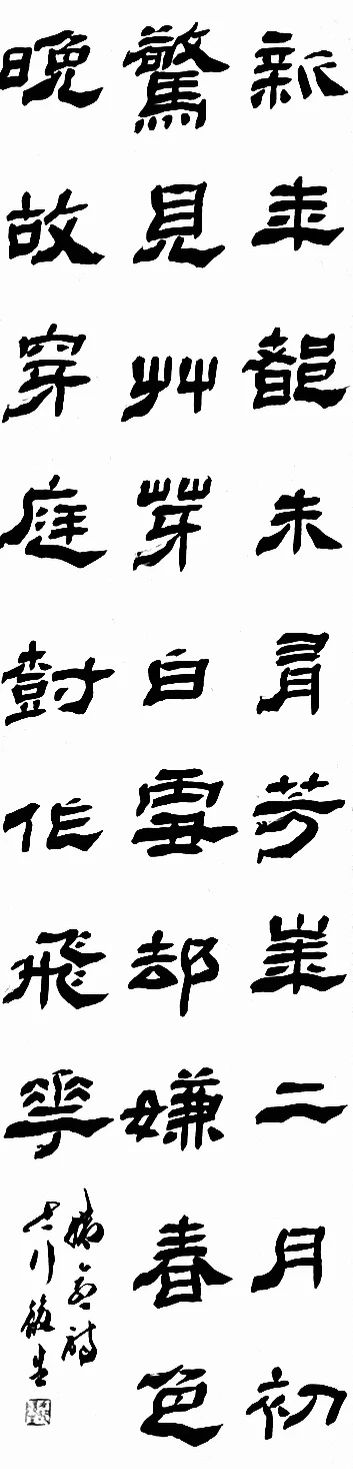 新年都未有芳華二月初
驚見艸芽白雪却嫌春色
晚故穿庭樹作飛花
韓愈詩